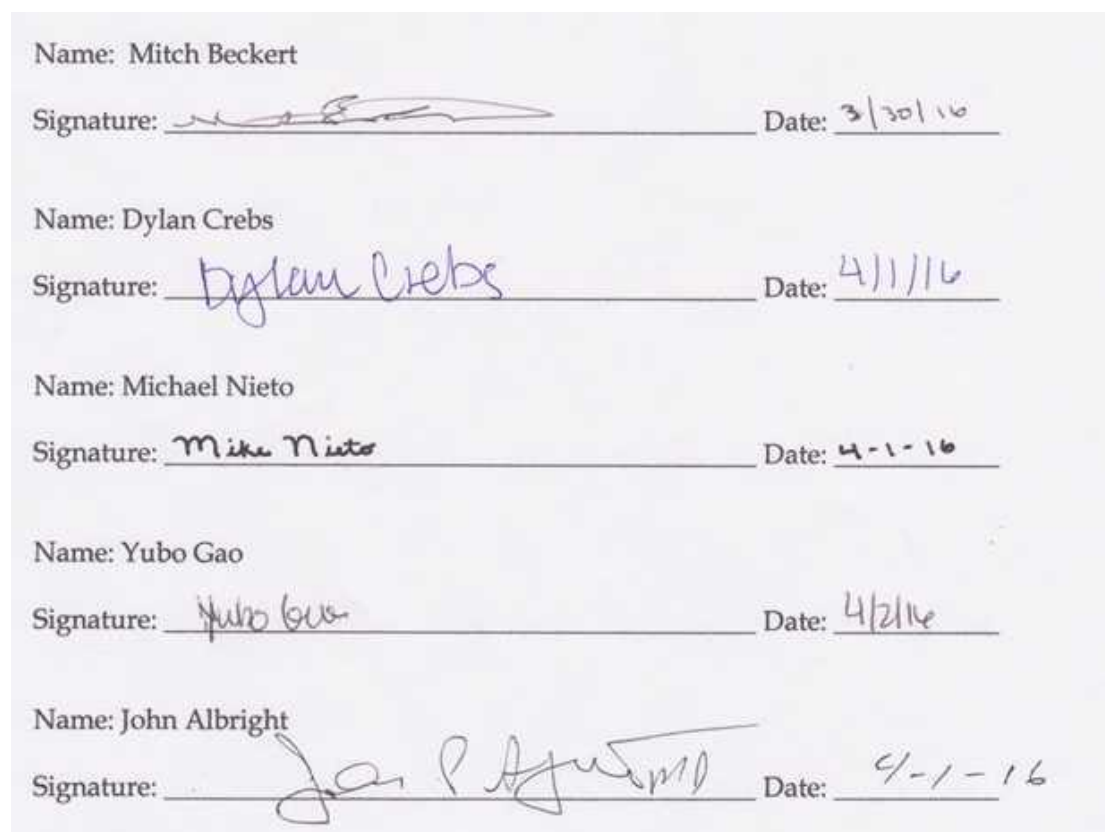 Name: Mitch Beckert
Signature: Date: 3/30/16
Name: Dylan Crebs
Signature: Dylan Crebs Date: 4/1/16
Name: Michael Nieto
Signature: Mike Nieto Date: 4-1-16
Name: Yubo Gao
Signature: Yubo Gao Date: 4/2/16
Name: John Albright
Signature: John P Albright MD Date: 4-1-16